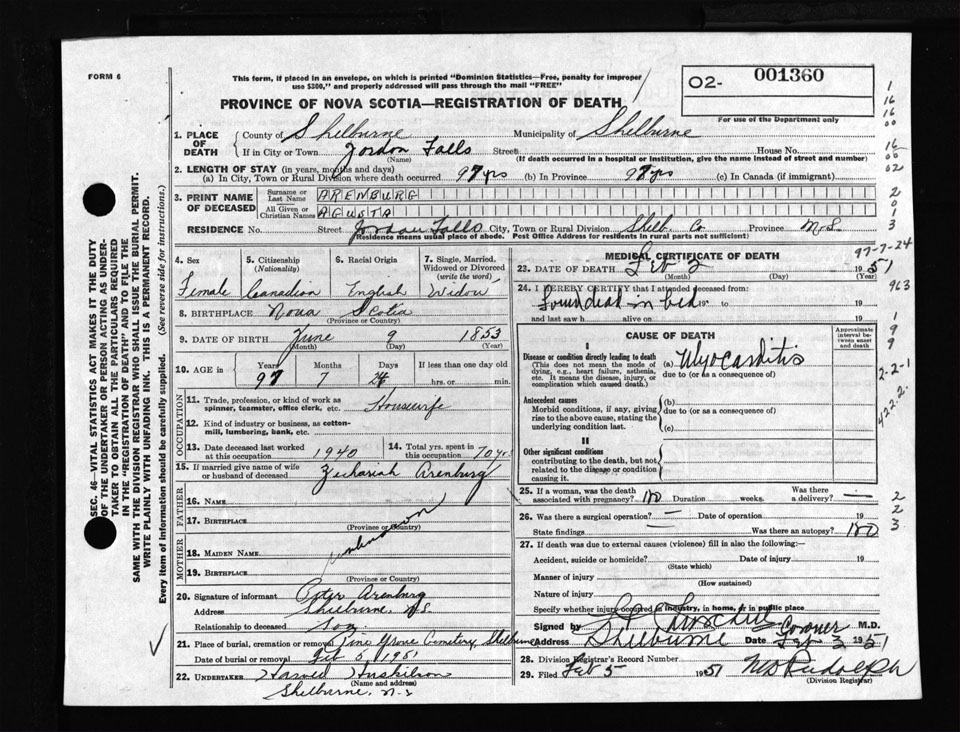 FORM 6
This form, if placed in an envelope, on which is printed "Dominion Statistics—Free, penalty for improper
use $300," and properly addressed will pass through the mail "FREE"
PROVINCE OF NOVA SCOTIA—REGISTRATION OF DEATH
02- 001360
For use of the Department only
1. PLACE OF DEATH
County of Shelburne Municipality of Shelburne
If in City or Town Jordon Falls Street House No.
(Name) (If death occurred in a hospital or institution, give the name instead of street and number)
2. LENGTH OF STAY (in years, months and days)
(a) In City, Town or Rural Division where death occurred 97 yrs (b) In Province 97 yrs (c) In Canada (if immigrant)
3. PRINT NAME OF DECEASED
Surname or Last Name ARENBURG
All Given or Christian Names AGUSTA
RESIDENCE No. Street Jordan Falls City, Town or Rural Division Shelb. Co. Province N.S.
(Residence means usual place of abode. Post Office Address for residents in rural parts not sufficient)
4. Sex 5. Citizenship (Nationality) 6. Racial Origin 7. Single, Married, Widowed or Divorced (write the word)
Female Canadian English Widow
8. BIRTHPLACE Nova Scotia
(Province or Country)
9. DATE OF BIRTH June 9 1853
(Month) (Day) (Year)
10. AGE in Years Months Days If less than one day old
97 7 24 hrs. or min.
OCCUPATION
11. Trade, profession, or kind of work as spinner, teamster, office clerk, etc. Housewife
12. Kind of industry or business, as cotton-mill, lumbering, bank, etc.
13. Date deceased last worked at this occupation 1940
14. Total yrs. spent in this occupation 70 yr.
15. If married give name of wife or husband of deceased Zechariah Arenburg
FATHER
16. NAME
17. BIRTHPLACE
(Province or Country)
unknown
MOTHER
18. MAIDEN NAME
19. BIRTHPLACE
(Province or Country)
20. Signature of informant Peter Arenburg
Address Shelburne, N.S.
Relationship to deceased Son
21. Place of burial, cremation or removal Pine Grove Cemetery, Shelburne
Date of burial or removal Feb 5, 1951
22. UNDERTAKER Harved Huskilson
(Name and address)
Shelburne, N.S
MEDICAL CERTIFICATE OF DEATH
23. DATE OF DEATH Feb 2 1951
(Month) (Day) (Year)
24. I HEREBY CERTIFY that I attended deceased from:
Found dead in bed 19 to 19
and last saw h alive on 19
CAUSE OF DEATH
Approximate interval between onset and death
I
Disease or condition directly leading to death
(This does not mean the mode of dying, e.g., heart failure, asthenia, etc. It means the disease, injury, or complication which caused death.)
(a) Myocarditis
due to (or as a consequence of)
Antecedent causes
Morbid conditions, if any, giving rise to the above cause, stating the underlying condition last.
(b)
due to (or as a consequence of)
(c)
II
Other significant conditions
contributing to the death, but not related to the disease or condition causing it.
25. If a woman, was the death associated with pregnancy? no Duration weeks. Was there a delivery? —
26. Was there a surgical operation? — Date of operation 19
State findings — Was there an autopsy? no
27. If death was due to external causes (violence) fill in also the following:—
Accident, suicide or homicide? Date of injury 19
(State which)
Manner of injury
(How sustained)
Nature of injury
Specify whether injury occurred in industry, in home, or in public place
Signed by Coroner M.D.
Address Shelburne Date Feb 3 1951
28. Division Registrar's Record Number
29. Filed Feb 5 1951 Rudolph
(Division Registrar)
SEC. 46—VITAL STATISTICS ACT MAKES IT THE DUTY
OF THE UNDERTAKER OR PERSON ACTING AS UNDER-
TAKER TO OBTAIN ALL THE PARTICULARS REQUIRED
IN THE "REGISTRATION OF DEATH" AND TO FILE THE
SAME WITH THE DIVISION REGISTRAR WHO SHALL ISSUE THE BURIAL PERMIT.
WRITE PLAINLY WITH UNFADING INK. THIS IS A PERMANENT RECORD.
Every item of information should be carefully supplied. (See reverse side for instructions.)
1
16
00
16
00
02
2
0
1
3
97-7-24
963
1
9
9
2-2-1
422.2
2
2
3